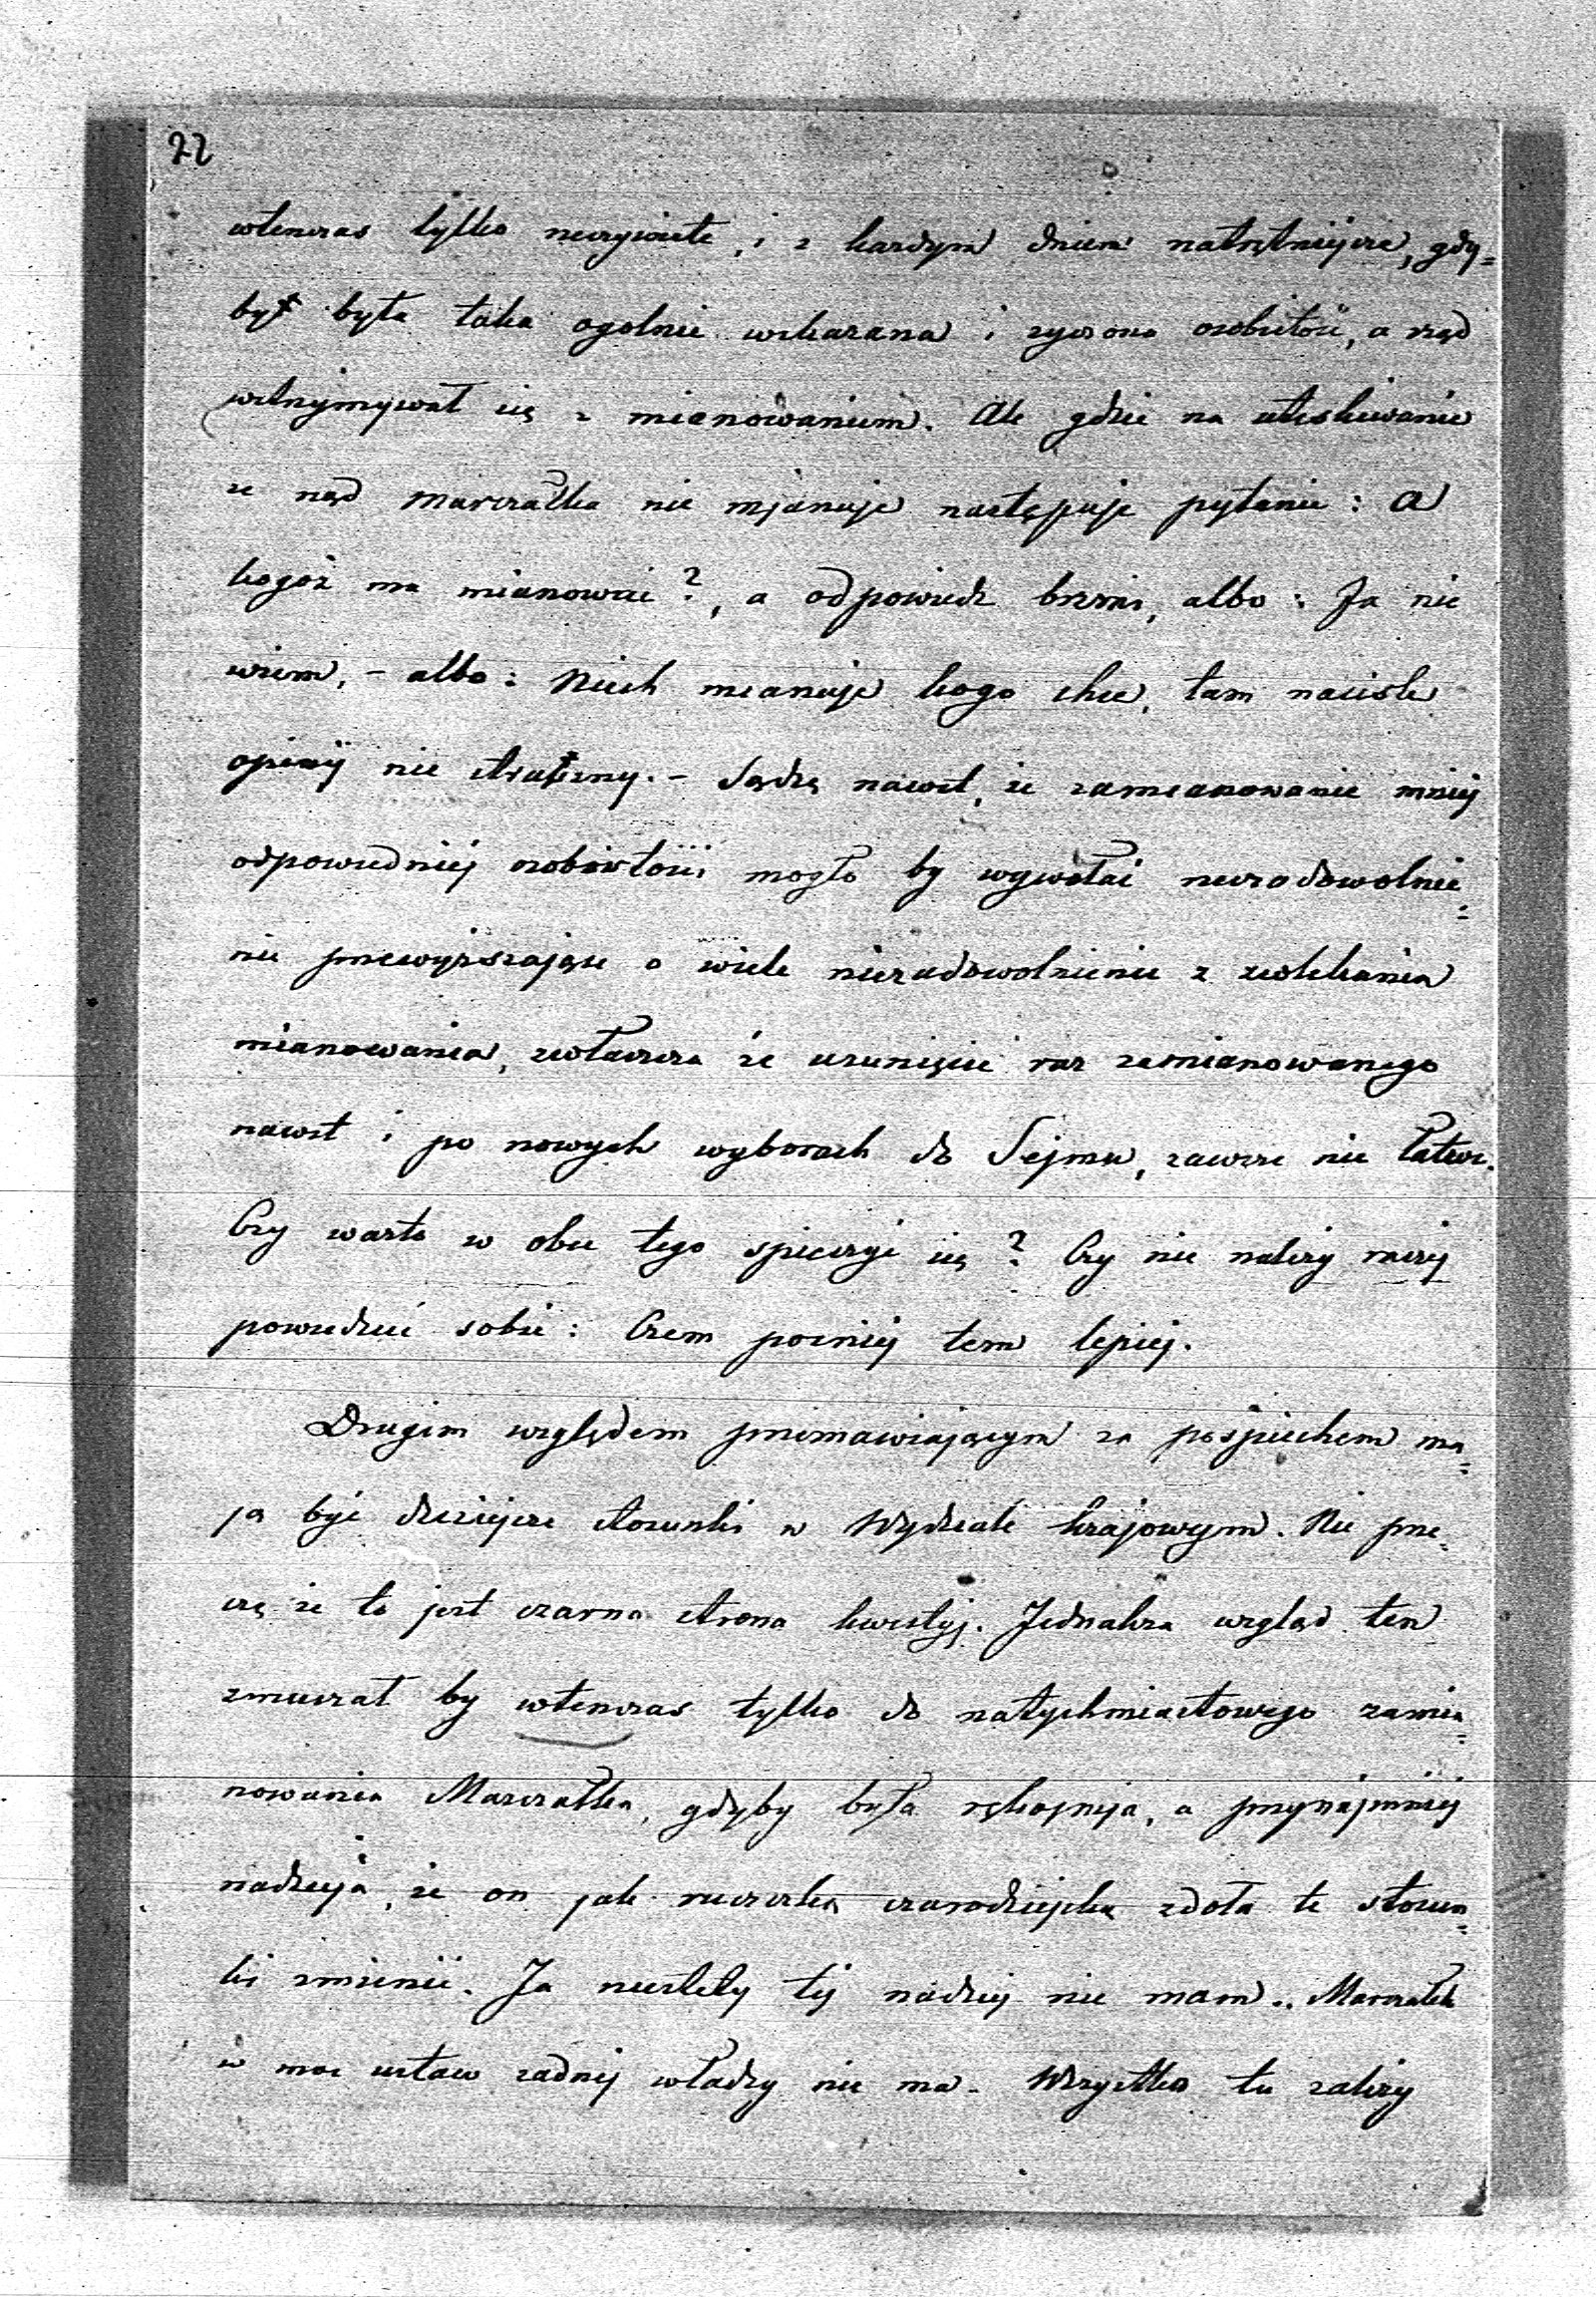 22
wtenczas tylko rzeczywiste, i z każdym dniem natrętniejsze, gdy=
by była taka ogolnie wskazana i życzona osobistość, a rząd
wstrzymywał się z mianowaniem. Ale gdzie na utyskiwanie
że rząd marszałka nie mjanuje następuje pytanie: A
kogoż ma mianować?, a odpowiedz brzmi, albo: Ja nie
wiem, – albo: Niech mianuje kogo chce, tam nacisk
opinij nie straszny. – Sądzę nawet, że zamianowanie mniej
odpowiedniej osobistości mogło by wywołać niezadowolnie=
nie przewyższające o wiele niezadowolnienie z zwlekania
mianowania, zwłaszcza że usunięcie raz zamianowanego
nawet i po nowych wyborach do Sejmu, zawsze nie łatwe.
Czy warto w obec tego spieszyć się? Czy nie należy raczej
powiedzieć sobie: Czem pozniej tem lepiej.
Drugim względem przemawiającym za pospiechem ma=
ja być dzisiejsze stosunki w Wydziale krajowym. Nie prze=
czę że to jest czarna strona kwestyj. Jednakża wzgląd ten
zmuszał by wtenczas tylko do natychmiastowego zamia=
nowania Marszałka, gdyby była rękojmja, a przynajmniej
nadzieja, że on jak rószczką czarodziejską zdoła te stosun=
ki zmienić. Ja niestety tej nadziej nie mam. Marszałek
w moc ustaw żadnej władzy nie ma. Wszystko tu zależy